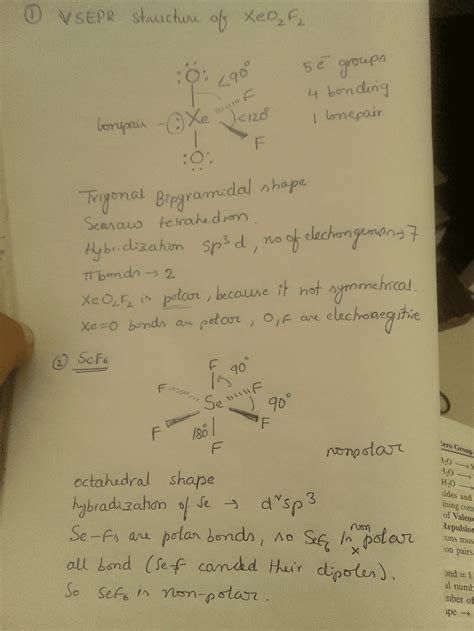 ① VSEPR structure of XeO2F2
:O: <90°
F
lonepair - : Xe <120°
F
:O:
5 e⁻ groups
4 bonding
1 lonepair
Trigonal Bipyramidal shape
Seasaw tetrahedron.
Hybridization sp³d, no of electron groups → 7
π bonds → 2
XeO2F2 is polar, because it not symmetrical.
Xe=O bonds are polar, O, F are electronegitive
② SeF6
F 90°
F F
Se 90°
F 180° F
F
nonpolar
octahedral shape
hybradization of Se → d²sp³
Se-Fs are polar bonds, so SeF6 is non polar
x
all bond (Se-F canceled their dipoles).
So SeF6 is non-polar.
Zero Group
H2O
H2O
H2O
ides and
ining com
of Valen
Repulsion
ons mus
on pairs
ond = 1
al numb
mber of
ype →